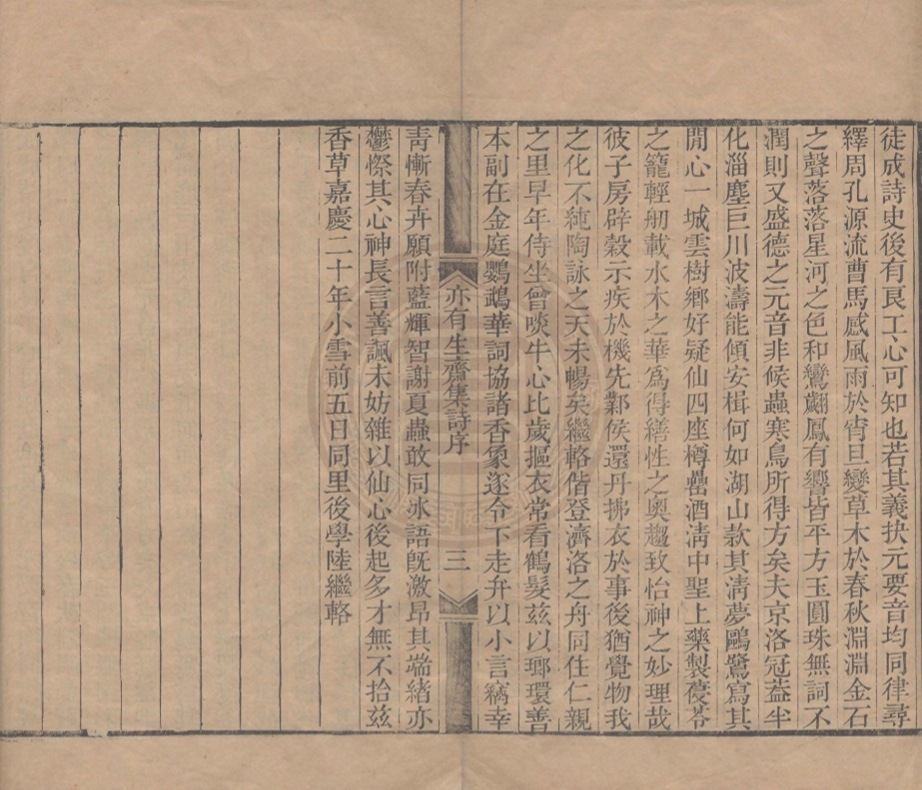 徒成詩史後有良工心可知也若其義抉元要音均同律尋
繹周孔源流曹馬感風雨於宵旦變草木於春秋淵淵金石
之聲落落星河之色和鸞翽鳳有響皆平方玉圓珠無詞不
潤則又盛德之元音非候蟲寒鳥所得方矣夫京洛冠葢半
化淄塵巨川波濤能傾安楫何如湖山款其淸夢鷗鷺寫其
閒心一城雲樹鄉好疑仙四座樽罍酒淸中聖上藥製葠苓
之籠輕舠載水木之華爲得繕性之奧趨致怡神之妙理哉
彼子房辟穀示疾於機先鄴侯還丹拂衣於事後猶覺物我
之化不純陶詠之天未暢矣繼輅偕登濟洛之舟同住仁親
之里早年侍坐曾啖牛心比歲摳衣常看鶴髮玆以瑯環善
本副在金庭鸚鵡華詞協諸香象遂令下走弁以小言竊幸
亦有生齋集詩序 三
靑慚春卉願附藍輝智謝夏蟲敢同氷語旣激昂其端緒亦
鬱憏其心神長言善諷未妨雜以仙心後起多才無不拾玆
香草嘉慶二十年小雪前五日同里後學陸繼輅